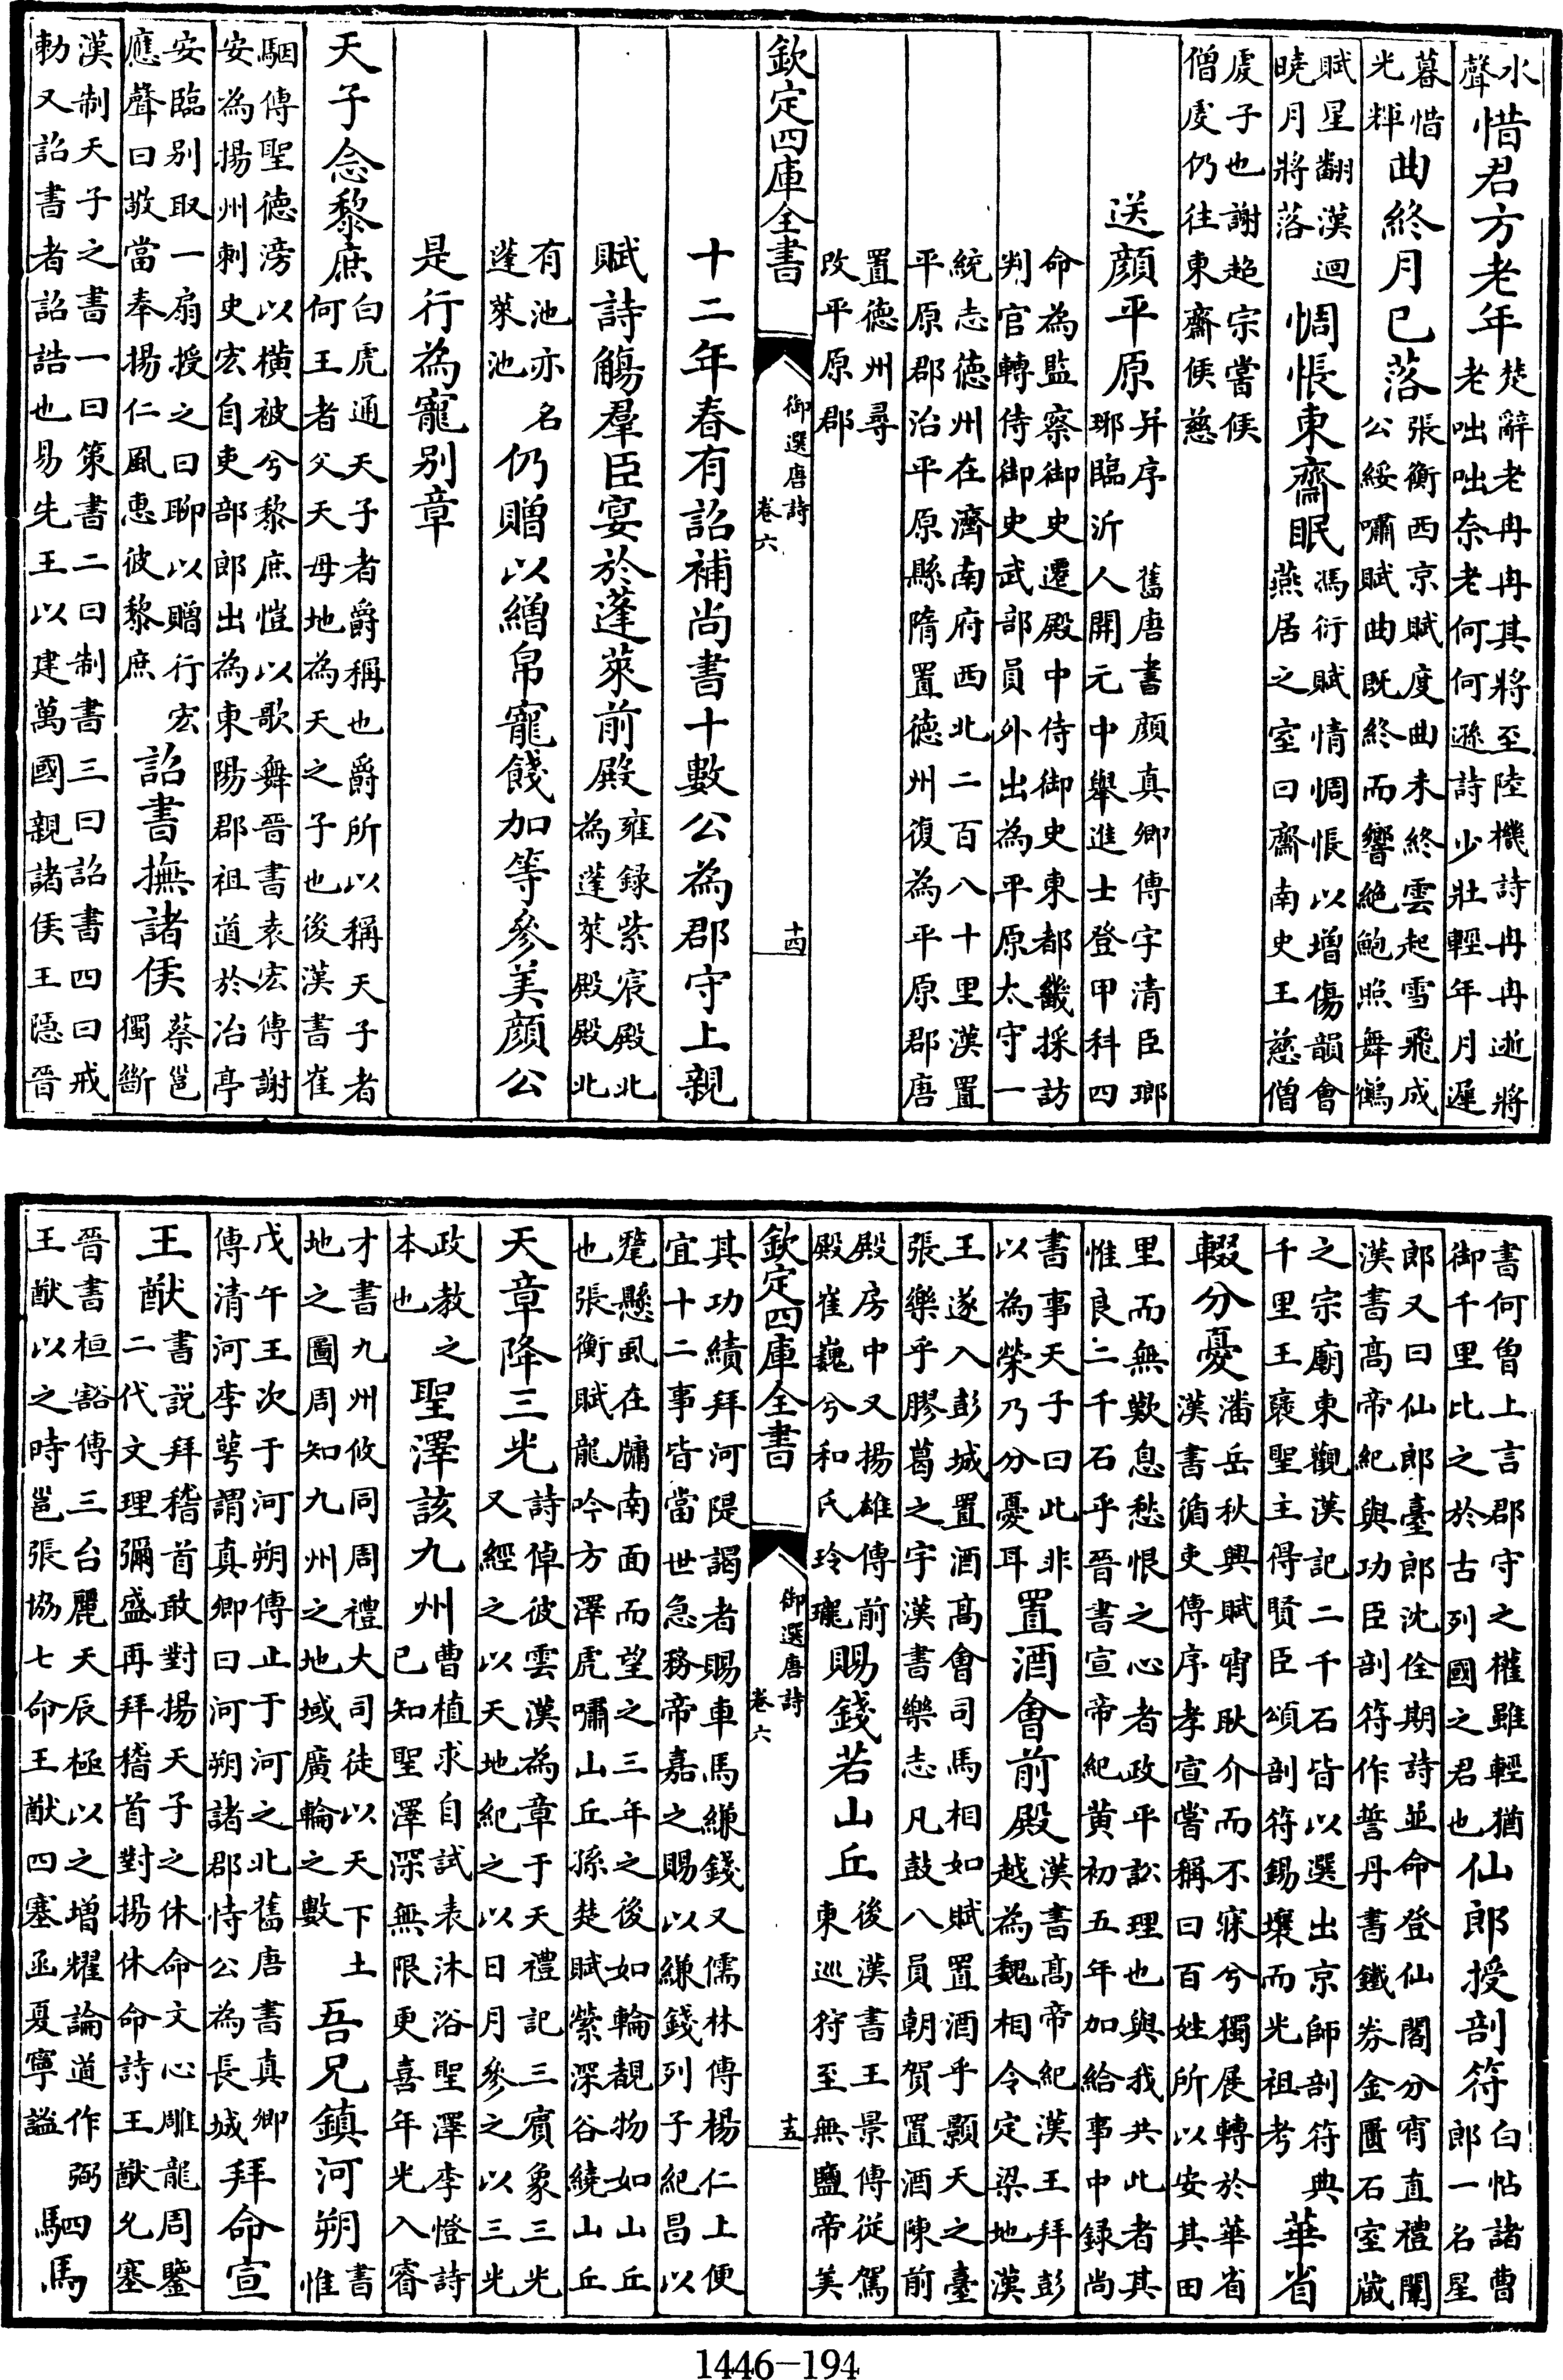 水聲惜君方老年楚辭老冉冉其將至陸機詩冉冉逝將老咄咄奈老何何遜詩少壯輕年月遲
暮惜光輝曲終月已落張衡西京賦度曲未終雲起雪飛成公綏嘯賦曲既終而響絶鮑照舞鶴
賦星翻漢迴曉月將落惆悵東齋眠馮衍賦情惆悵以增傷韻會燕居之室曰齋南史王慈僧
虔子也謝超宗嘗候僧虔仍往東齋候慈
送顔平原并序 舊唐書顔真卿傳字清臣瑯琊臨沂人開元中舉進士登甲科四
命為監察御史遷殿中侍御史東都畿採訪判官轉侍御史武部員外出為平原太守一
統志德州在濟南府西北二百八十里漢置平原郡治平原縣隋置德州復為平原郡唐
置德州尋改平原郡
欽定四庫全書 御選唐詩卷六 十四
十二年春有詔補尚書十數公為郡守上親
賦詩觴羣臣宴於蓬萊前殿雍録紫宸殿北為蓬萊殿殿北
有池亦名蓬萊池仍贈以繒帛寵餞加等參美顔公
是行為寵别章
天子念黎庶白虎通天子者爵稱也爵所以稱天子者何王者父天母地為天之子也後漢書崔
駰傳聖德滂以横被兮黎庶愷以歌舞晉書袁宏傳謝安為揚州刺史宏自吏部郎出為東陽郡祖道於冶亭
安臨别取一扇授之曰聊以贈行宏應聲曰敬當奉揚仁風惠彼黎庶詔書撫諸侯蔡邕獨斷
漢制天子之書一曰策書二曰制書三曰詔書四曰戒勅又詔書者詔誥也易先王以建萬國親諸侯王隱晉
書何曾上言郡守之權雖輕猶御千里比之於古列國之君也仙郎授剖符白帖諸曹郎一名星
郎又曰仙郎臺郎沈佺期詩並命登仙閣分宵直禮闈漢書髙帝紀與功臣剖符作誓丹書鐵券金匱石室藏
之宗廟東觀漢記二千石皆以選出京師剖符典千里王襃聖主得賢臣頌剖符錫壤而光祖考華省
輟分憂潘岳秋興賦宵耿介而不寐兮獨展轉於華省漢書循吏傳序孝宣嘗稱曰百姓所以安其田
里而無歎息愁恨之心者政平訟理也與我共此者其惟良二千石乎晉書宣帝紀黄初五年加給事中録尚
書事天子曰此非以為榮乃分憂耳置酒會前殿漢書髙帝紀漢王拜彭越為魏相令定梁地漢
王遂入彭城置酒髙會司馬相如賦置酒乎顥天之臺張樂乎膠葛之宇漢書樂志凡鼓八員朝賀置酒陳前
殿房中又揚雄傳前殿崔巍兮和氏玲瓏賜錢若山丘後漢書王景傳從駕東巡狩至無鹽帝美
欽定四庫全書 御選唐詩卷六 十五
其功績拜河隄謁者賜車馬縑錢又儒林傳楊仁上便宜十二事皆當世急務帝嘉之賜以縑錢列子紀昌以
氂懸虱在牖南面而望之三年之後如輪覩物如山丘也張衡賦龍吟方澤虎嘯山丘孫楚賦縈深谷繞山丘
天章降三光詩倬彼雲漢為章于天禮記三賓象三光又經之以天地紀之以日月參之以三光
政教之本也聖澤該九州曹植求自試表沐浴聖澤李憕詩已知聖澤深無限更喜年光入睿
才書九州攸同周禮大司徒以天下土地之圖周知九州之地域廣輪之數吾兄鎮河朔書惟
戊午王次于河朔傳止于河之北舊唐書真卿傳清河李萼謂真卿曰河朔諸郡恃公為長城拜命宣
王猷書説拜稽首敢對揚天子之休命文心雕龍周鑒二代文理彌盛再拜稽首對揚休命詩王猷允塞
晉書桓豁傳三台麗天辰極以之增耀論道作弼王猷以之時邕張協七命王猷四塞函夏寧謐駟馬
1446-194